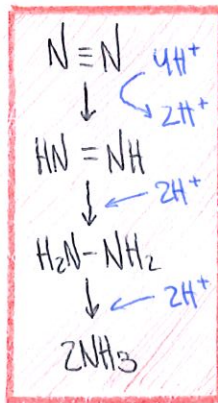 N≡N
4H⁺
2H⁺
HN=NH
2H⁺
H₂N-NH₂
2H⁺
2NH₃